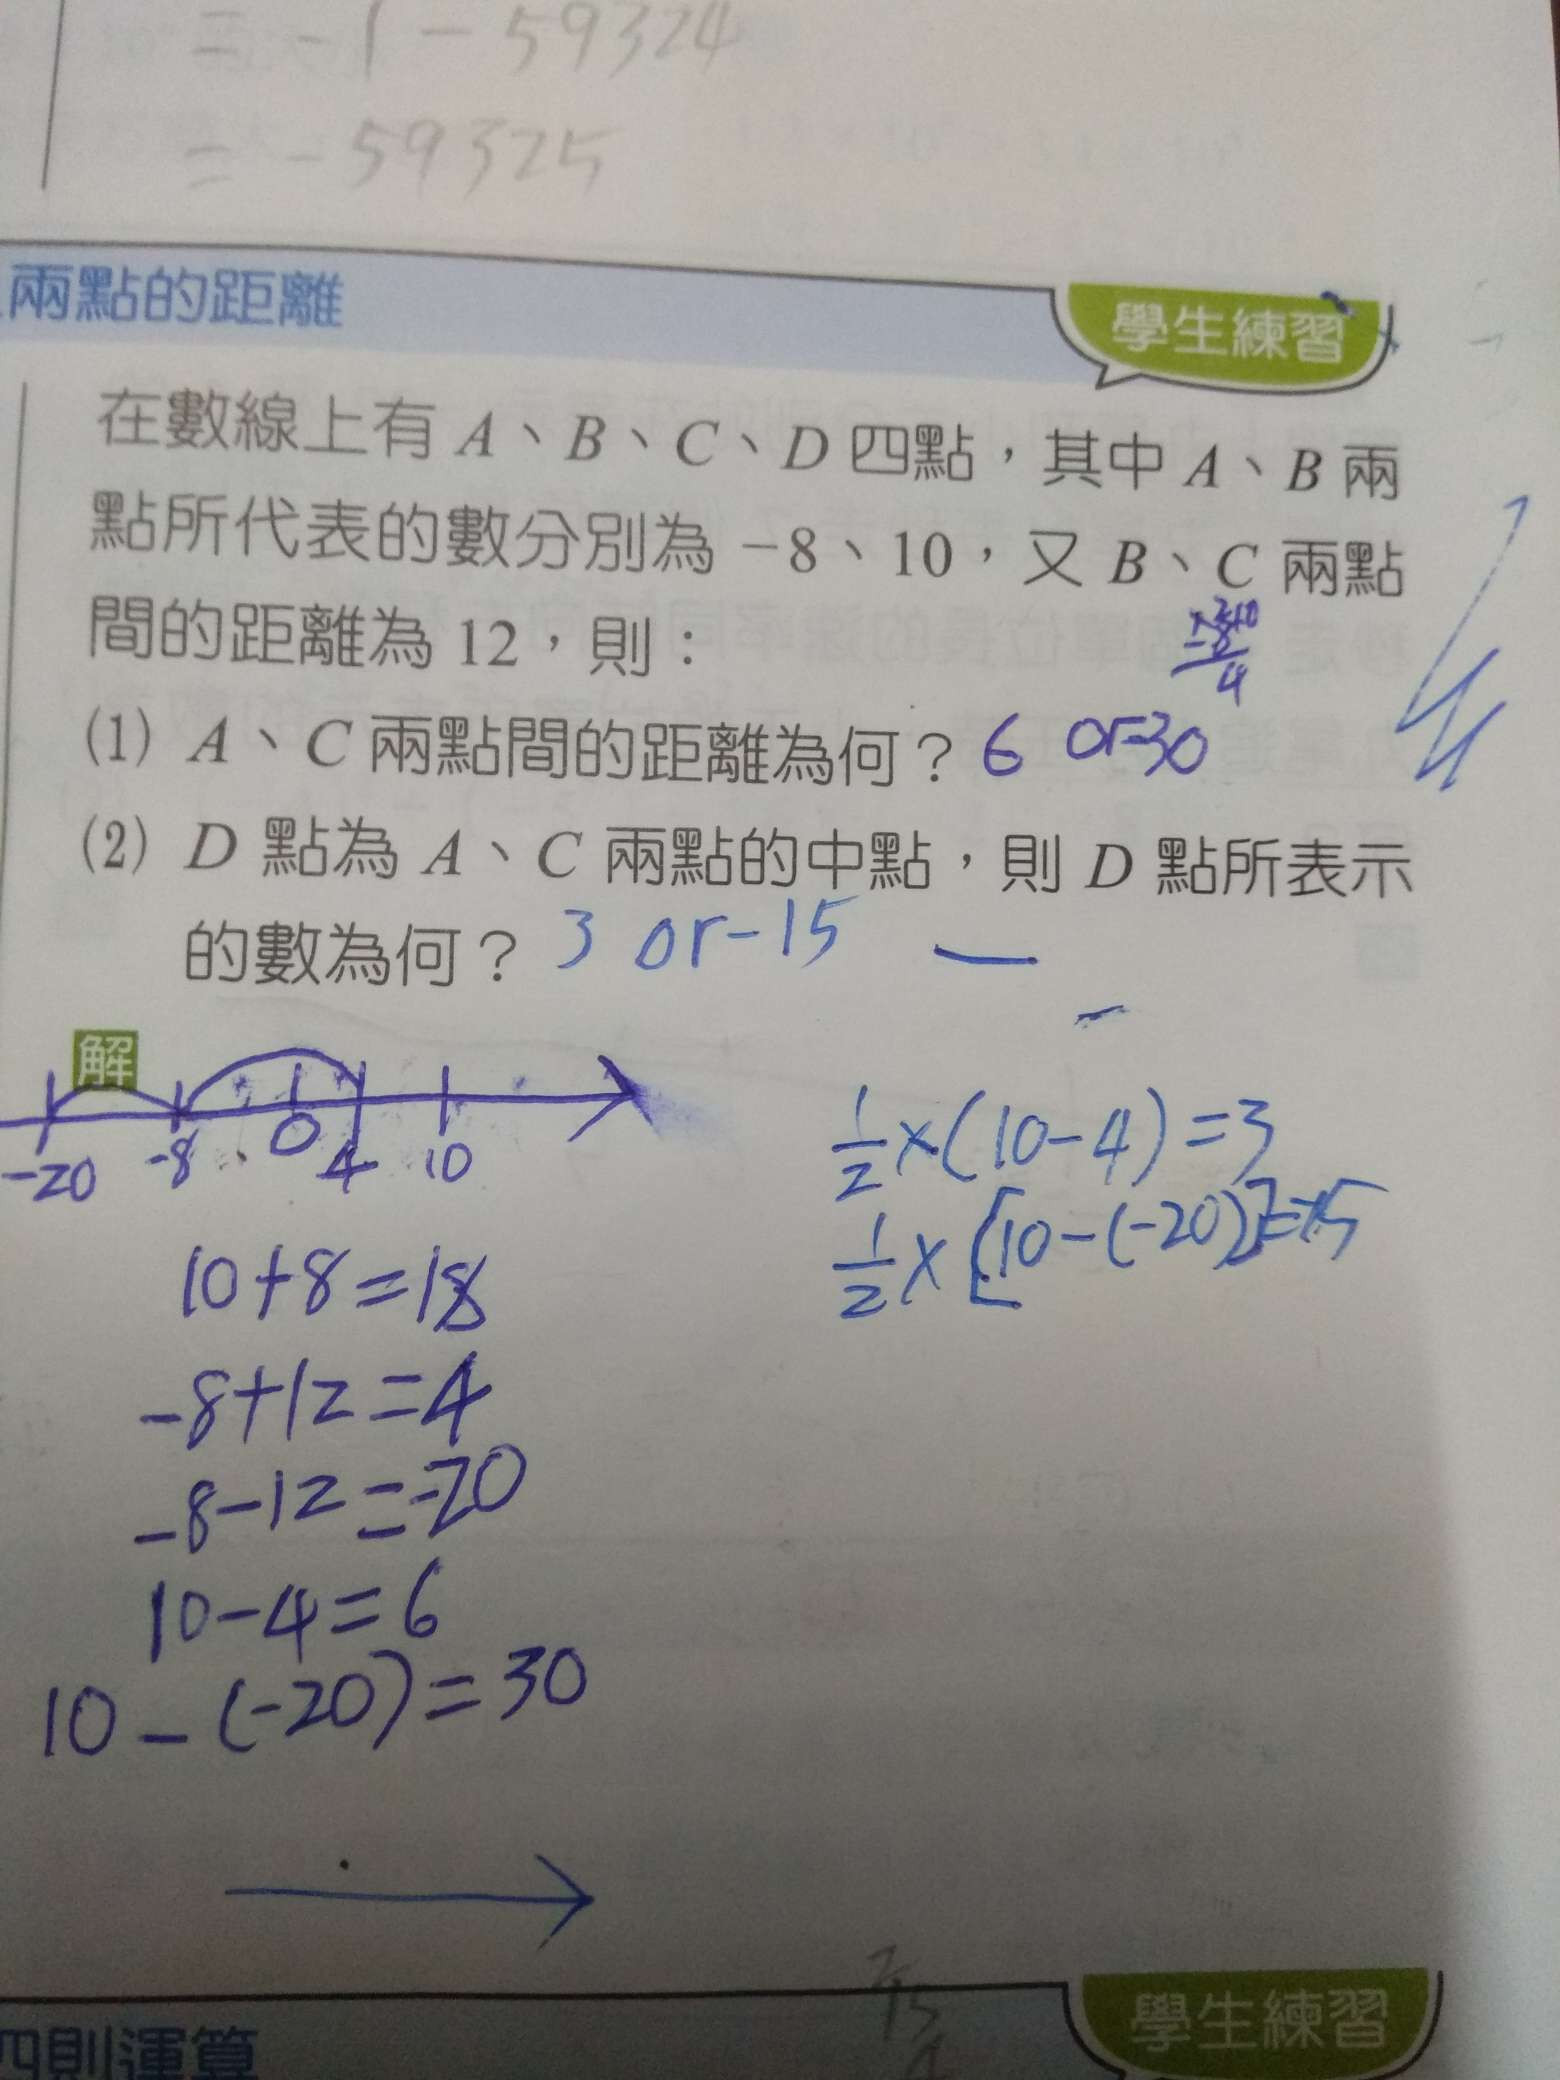 = -1 - 59324
= -59325
兩點的距離
學生練習
在數線上有 A、B、C、D 四點，其中 A、B 兩
點所代表的數分別為 -8、10，又 B、C 兩點
間的距離為 12，則：
(1) A、C 兩點間的距離為何？ 6 or 30
(2) D 點為 A、C 兩點的中點，則 D 點所表示
的數為何？ 3 or -15
解
-20 -8 0 4 10
10+8=18
-8+12=4
-8-12=-20
10-4=6
10-(-20)=30
1/2×(10-4)=3
1/2×[10-(-20)]=15
學生練習
四則運算